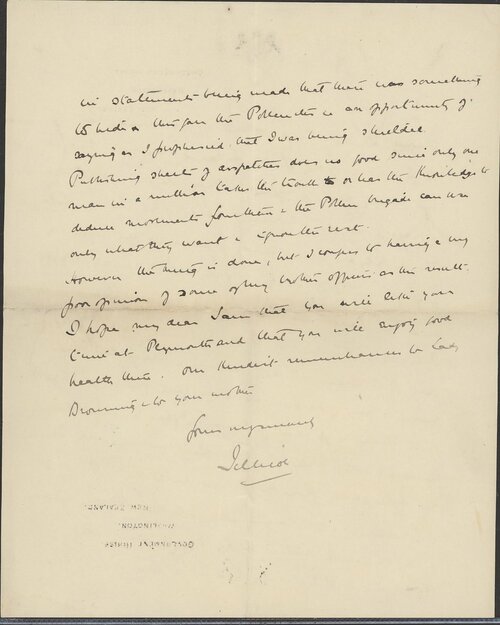 in statements being made that there was something
to hide & this gave the Pollenites &c an opportunity of
saying as I prophesied that I was being shielded.
Publishing sheets of despatches does no good since only one
man in a million takes the trouble to or has the knowledge to
deduce movements from them & the Pollen brigade can use
only what they want & ignore the rest.
However the thing is done, but I confess to having a very
poor opinion of some of my brother officers as the result.
I hope my dear Sam that you will like your
time at Plymouth and that you will enjoy good
health there. Our kindest remembrances to Lady
Browning & to your mother
Yours very sincerely
Jellicoe
GOVERNMENT HOUSE
WELLINGTON.
NEW ZEALAND.